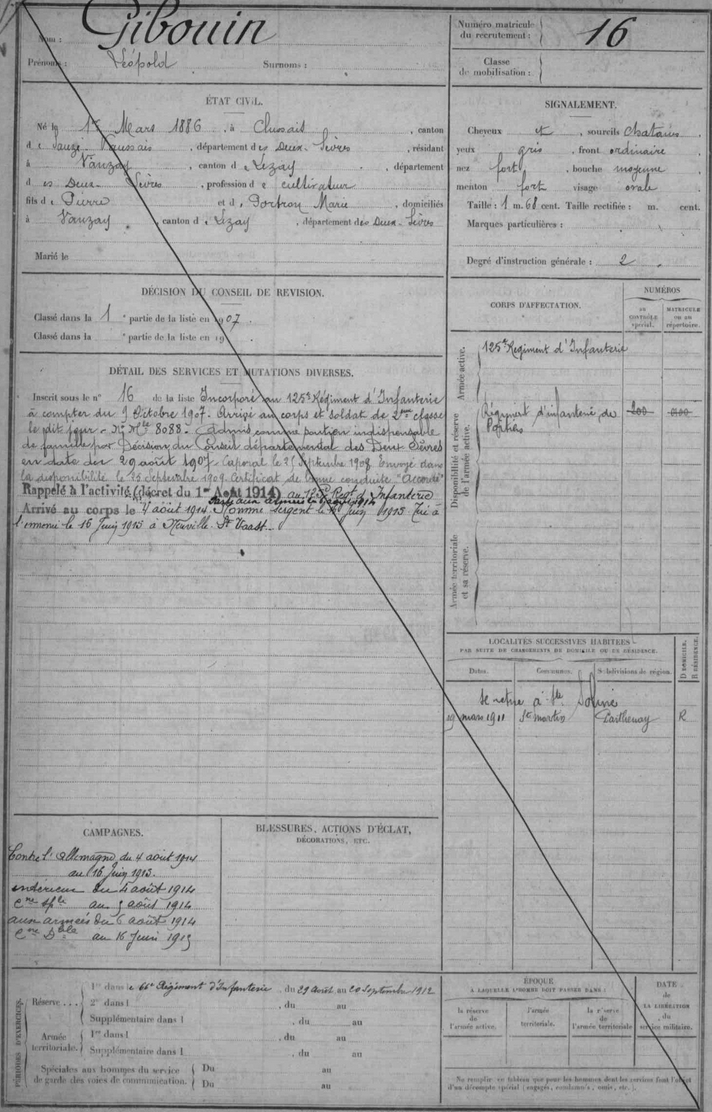 Nom : Gibouin
Prénoms : Léopold Surnoms :
Numéro matricule du recrutement : 16
Classe de mobilisation :
ÉTAT CIVIL.
Né le 1er Mars 1886, à Clussais, canton
de Sauzé-Vaussais, département des Deux-Sèvres, résidant
à Vanzay, canton de Lezay, département
des Deux-Sèvres, profession de cultivateur
fils de Pierre et de Portron Marie, domiciliés
à Vanzay, canton de Lezay, département des Deux-Sèvres
Marié le
SIGNALEMENT.
Cheveux et, sourcils chatains
yeux gris, front ordinaire
nez fort, bouche moyenne
menton fort visage ovale
Taille : 1 m. 68 cent. Taille rectifiée : m. cent.
Marques particulières :
Degré d'instruction générale : 2
DÉCISION DU CONSEIL DE REVISION.
Classé dans la 1 partie de la liste en 1907.
Classé dans la partie de la liste en 19
DÉTAIL DES SERVICES ET MUTATIONS DIVERSES.
Inscrit sous le n° 16 de la liste Incorporé au 125e Régiment d'Infanterie
à compter du 9 Octobre 1907. Arrivé au corps et soldat de 2me classe
le dit jour - No Mle 8088 - Admis comme soutien indispensable
de famille par Décision du Conseil départemental des Deux Sèvres
en date du 29 août 1907. Caporal le 25 Septembre 1908. Envoyé dans
la disponibilité le 25 Septembre 1909. Certificat de bonne conduite "Accordé"
Rappelé à l'activité (décret du 1er Août 1914) au Regt d'Infanterie
Parti aux armées le 6 août 1914
Arrivé au corps le 4 août 1914. Nommé sergent le Juin 1915. Tué à
l'ennemi le 16 Juin 1915 à Neuville St Vaast.
CORPS D'AFFECTATION.
NUMÉROS
au contrôle spécial.
matricule ou au répertoire.
Armée active.
125e Régiment d'Infanterie
Disponibilité et réserve de l'armée active.
Régiment d'infanterie de Poitiers
Armée territoriale et sa réserve.
LOCALITÉS SUCCESSIVES HABITÉES
PAR SUITE DE CHANGEMENTS DE DOMICILE OU DE RÉSIDENCE.
Dates. Communes. Subdivisions de région. D. domicile. R. résidence.
se retire à Ste Soline
19 mars 1911 St Martin Parthenay R
CAMPAGNES.
Contre l'Allemagne du 4 août 1914
au 16 Juin 1915.
intérieur du 4 août 1914
Cne Sple au 5 août 1914
aux armées du 6 août 1914
Cne Dble au 16 Juin 1915
BLESSURES, ACTIONS D'ÉCLAT,
DÉCORATIONS, ETC.
PÉRIODES D'EXERCICES.
Réserve ...
1er dans le Régiment d'Infanterie, du 29 Août au 20 Septembre 1912
2e dans l , du au
Supplémentaire dans l , du au
Armée territoriale.
1re dans l , du au
Supplémentaire dans l , du au
Spéciales aux hommes du service de garde des voies de communication.
Du au
Du au
ÉPOQUE
A LAQUELLE L'HOMME DOIT PASSER DANS :
la réserve de l'armée active.
l'armée territoriale.
la réserve de l'armée territoriale
DATE de LA LIBÉRATION du service militaire.
Ne remplir ce tableau que pour les hommes dont les services font l'objet
d'un décompte spécial (engagés, condamnés, omis, etc.).